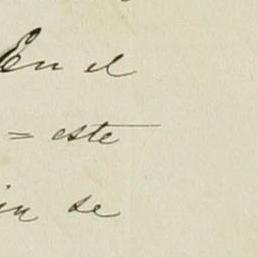 En el
= este
in se